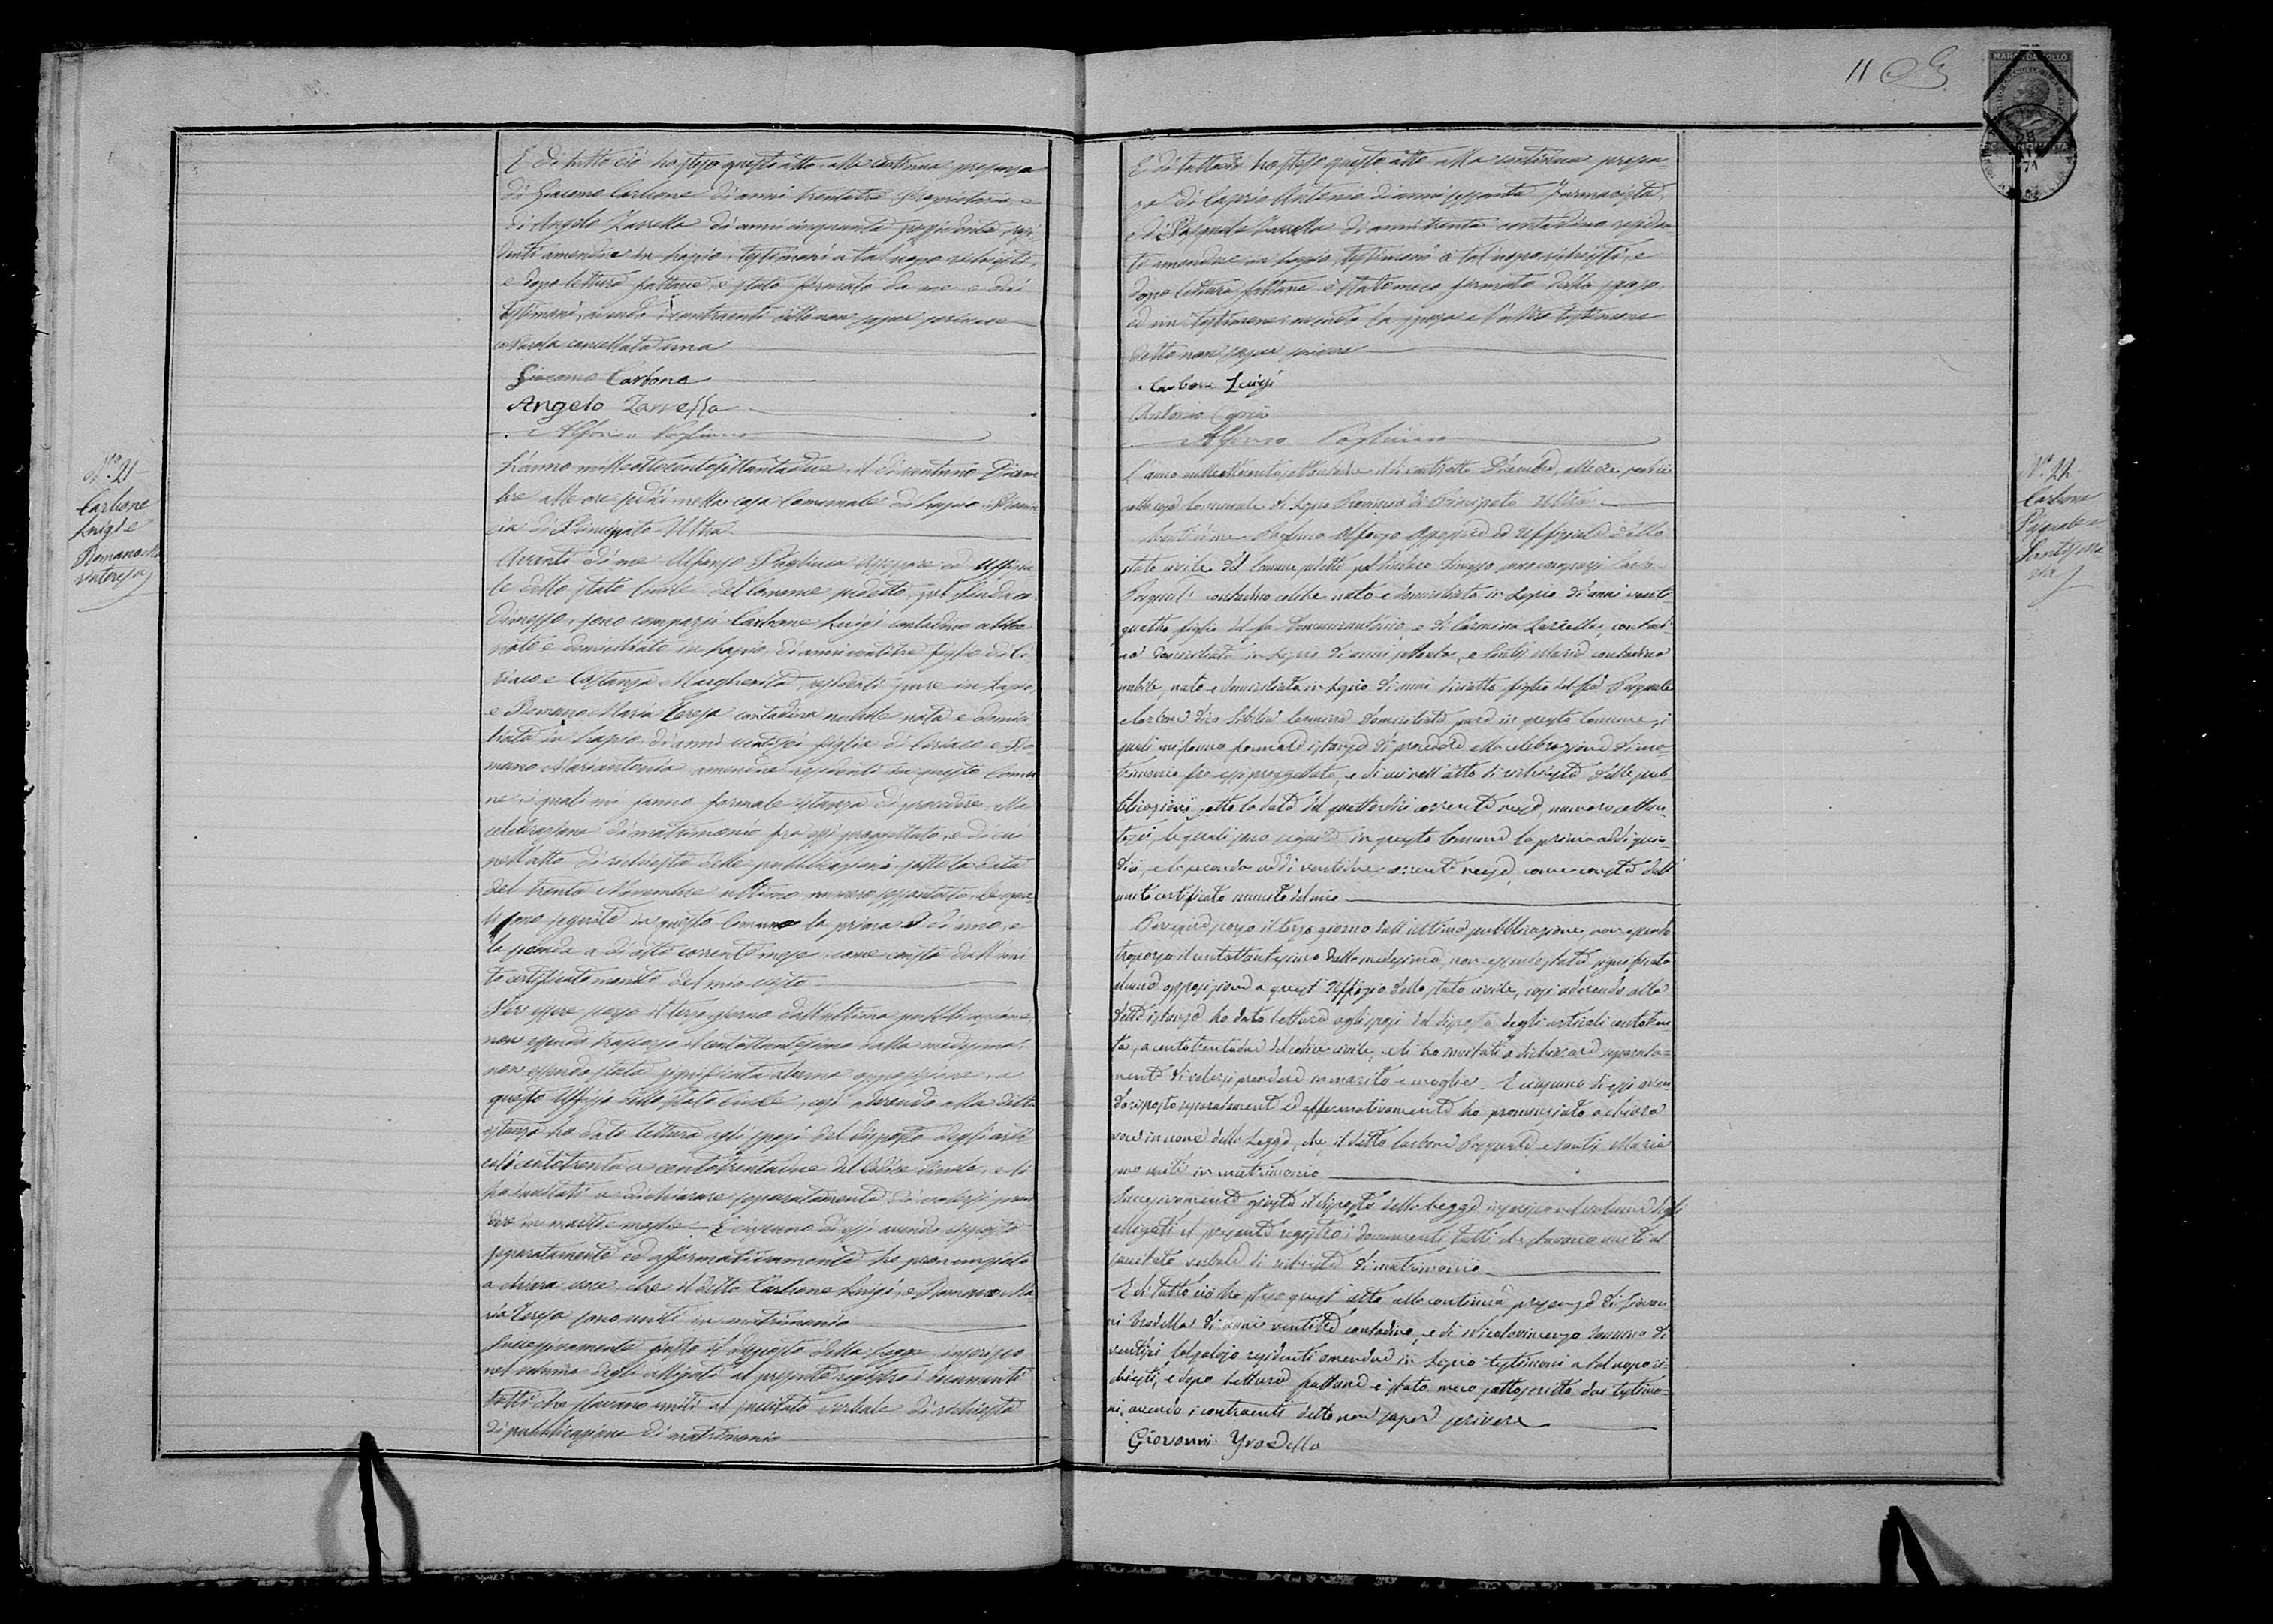 E di tutto ciò ho steso quest'atto alla continua presenza
di Giacomo Carbone di anni trentatre Proprietario, e
di Angelo Zarrella di anni cinquanta possidente, resi-
denti amendue in Lapio, testimoni a tal uopo richiesti,
e dopo lettura fattane, è stato firmato da me e dai
testimoni, avendo i contraenti detto non saper scrivere
Parola cancellata una
Giacomo Carbone
Angelo Zarrella
Alfonso Pagliuca
N.º 21
Carbone
Luigi e
Romano Ma
riateresa
L'anno milleottocentosettantadue, il dì ventuno Dicem
bre alle ore sedici nella casa Comunale di Lapio, Provin
cia di Principato Ultra
Avanti di me Alfonso Pagliuca Assessore ed Uffizia
le dello stato Civile del Comune sudetto, pel Sindaco
dimesso, sono comparsi Carbone Luigi contadino celibe
nato e domiciliato in Lapio, di anni ventitre figlio di Ci
riaco e Costanza Margherita, residenti pure in Lapio,
e Romano Maria Teresa contadina nubile nata e domici
liata in Lapio di anni ventisei figlia di Ciriaco e Ro
mano Mariantonia amendue residenti in questo Comu
ne, i quali mi fanno formale istanza di procedere alla
celebrazione di matrimonio fra essi progettato, e di cui
nell'atto di richiesta delle pubblicazioni sotto la data
del trenta Novembre ultimo numero, le qua
li sono seguite in questo Comune la prima a dì uno, e
la seconda a dì otto corrente mese, come consta dall'uni
to certificato munito del mio visto
Per essere scorso il terzo giorno dall'ultima pubblicazione,
non essendo trascorso il centottantesimo dalla medesima,
non essendo stata significata alcuna opposizione, a
questo Uffizio dello stato Civile, così aderendo alla detta
istanza ho dato lettura agli sposi del disposto degli arti
coli centotrenta a centotrentadue del Codice Civile, e li
ho invitati a dichiarare separatamente di volersi pren
dere in marito e moglie. E ciascuno di essi avendo risposto
separatamente ed affermativamente ho pronunziato
a chiara voce, che il detto Carbone Luigi, e Romano Ma
ria Teresa sono uniti in matrimonio
Successivamente giusta il disposto della Legge inserisco
nel volume degli allegati al presente registro i documenti
tutti che stavano uniti al succitato verbale di richiesta
di pubblicazione di matrimonio
11
MARCA DA BOLLO
E di tutto ciò ho steso questo atto alla continua presen
za di Caprio Antonio di anni sessanta Farmacista,
e di Pasquale Zarrella di anni trenta contadino residen
ti amendue in Lapio, testimoni a tal uopo richiesti, e
dopo lettura fattane è stato meco firmato dallo sposo
ed un testimone avendo la sposa e l'altro testimone
detto non saper scrivere
Carbone Luigi
Antonio Caprio
Alfonso Pagliuca
N.º 22
Carbone
Pasquale e
Santis Ma
ria
L'anno milleottocentosettantadue il dì ventotto Dicembre, alle ore sedici
nella casa Comunale di Lapio Provincia di Principato Ultra
Avanti di me Pagliuca Alfonso Assessore ed Uffiziale dello
stato civile del Comune sudetto pel Sindaco dimesso, sono comparsi Carbone
Pasquale contadino celibe nato e domiciliato in Lapio di anni venti-
quattro figlio del fu Domenicantonio, e di Carmina Zarrella, contadi-
na domiciliata in Lapio di anni settanta, e Santis Maria contadina
nubile, nata e domiciliata in Lapio di anni diciotto figlia del fu Pasquale
e Carbone dico Sibilia Carmina domiciliata pure in questo Comune, i
quali mi fanno formale istanza di procedere alla celebrazione di ma-
trimonio fra essi progettato, e di cui nell'atto di richiesta delle pub-
blicazioni sotto la data del quattordici corrente mese, numero
le quali sono seguite in questo Comune la prima addì quin-
dici, e la seconda addì ventidue corrente mese, come consta dall'
unito certificato munito del mio
Per essere scorso il terzo giorno dall'ultima pubblicazione, non essendo
trascorso il centottantesimo dalla medesima, non essendo stata significata
alcuna opposizione a quest'Uffizio dello stato civile, così aderendo alla
detta istanza ho dato lettura agli sposi del disposto degli articoli centotren
ta, a centotrentadue del codice civile, e li ho invitati a dichiarare separata-
mente di volersi prendere in marito e moglie. E ciascuno di essi aven
do risposto separatamente ed affermativamente ho pronunziato a chiara
voce in nome della Legge, che il detto Carbone Pasquale e Santis Maria
sono uniti in matrimonio
Successivamente giusta il disposto della Legge inserisco nel volume degli
allegati al presente registro i documenti tutti che stavano uniti al
succitato verbale di richiesta di matrimonio
E di tutto ciò ho steso quest'atto alla continua presenza di Giovan
ni Vradella di anni ventitre contadino, e di Nicolavincenzo Romano di
ventisei calzolajo residenti amendue in Lapio testimoni a tal uopo ri-
chiesti, e dopo lettura fattane è stato meco sottoscritto dai testimo-
ni, avendo i contraenti detto non saper scrivere
Giovanni Vradella